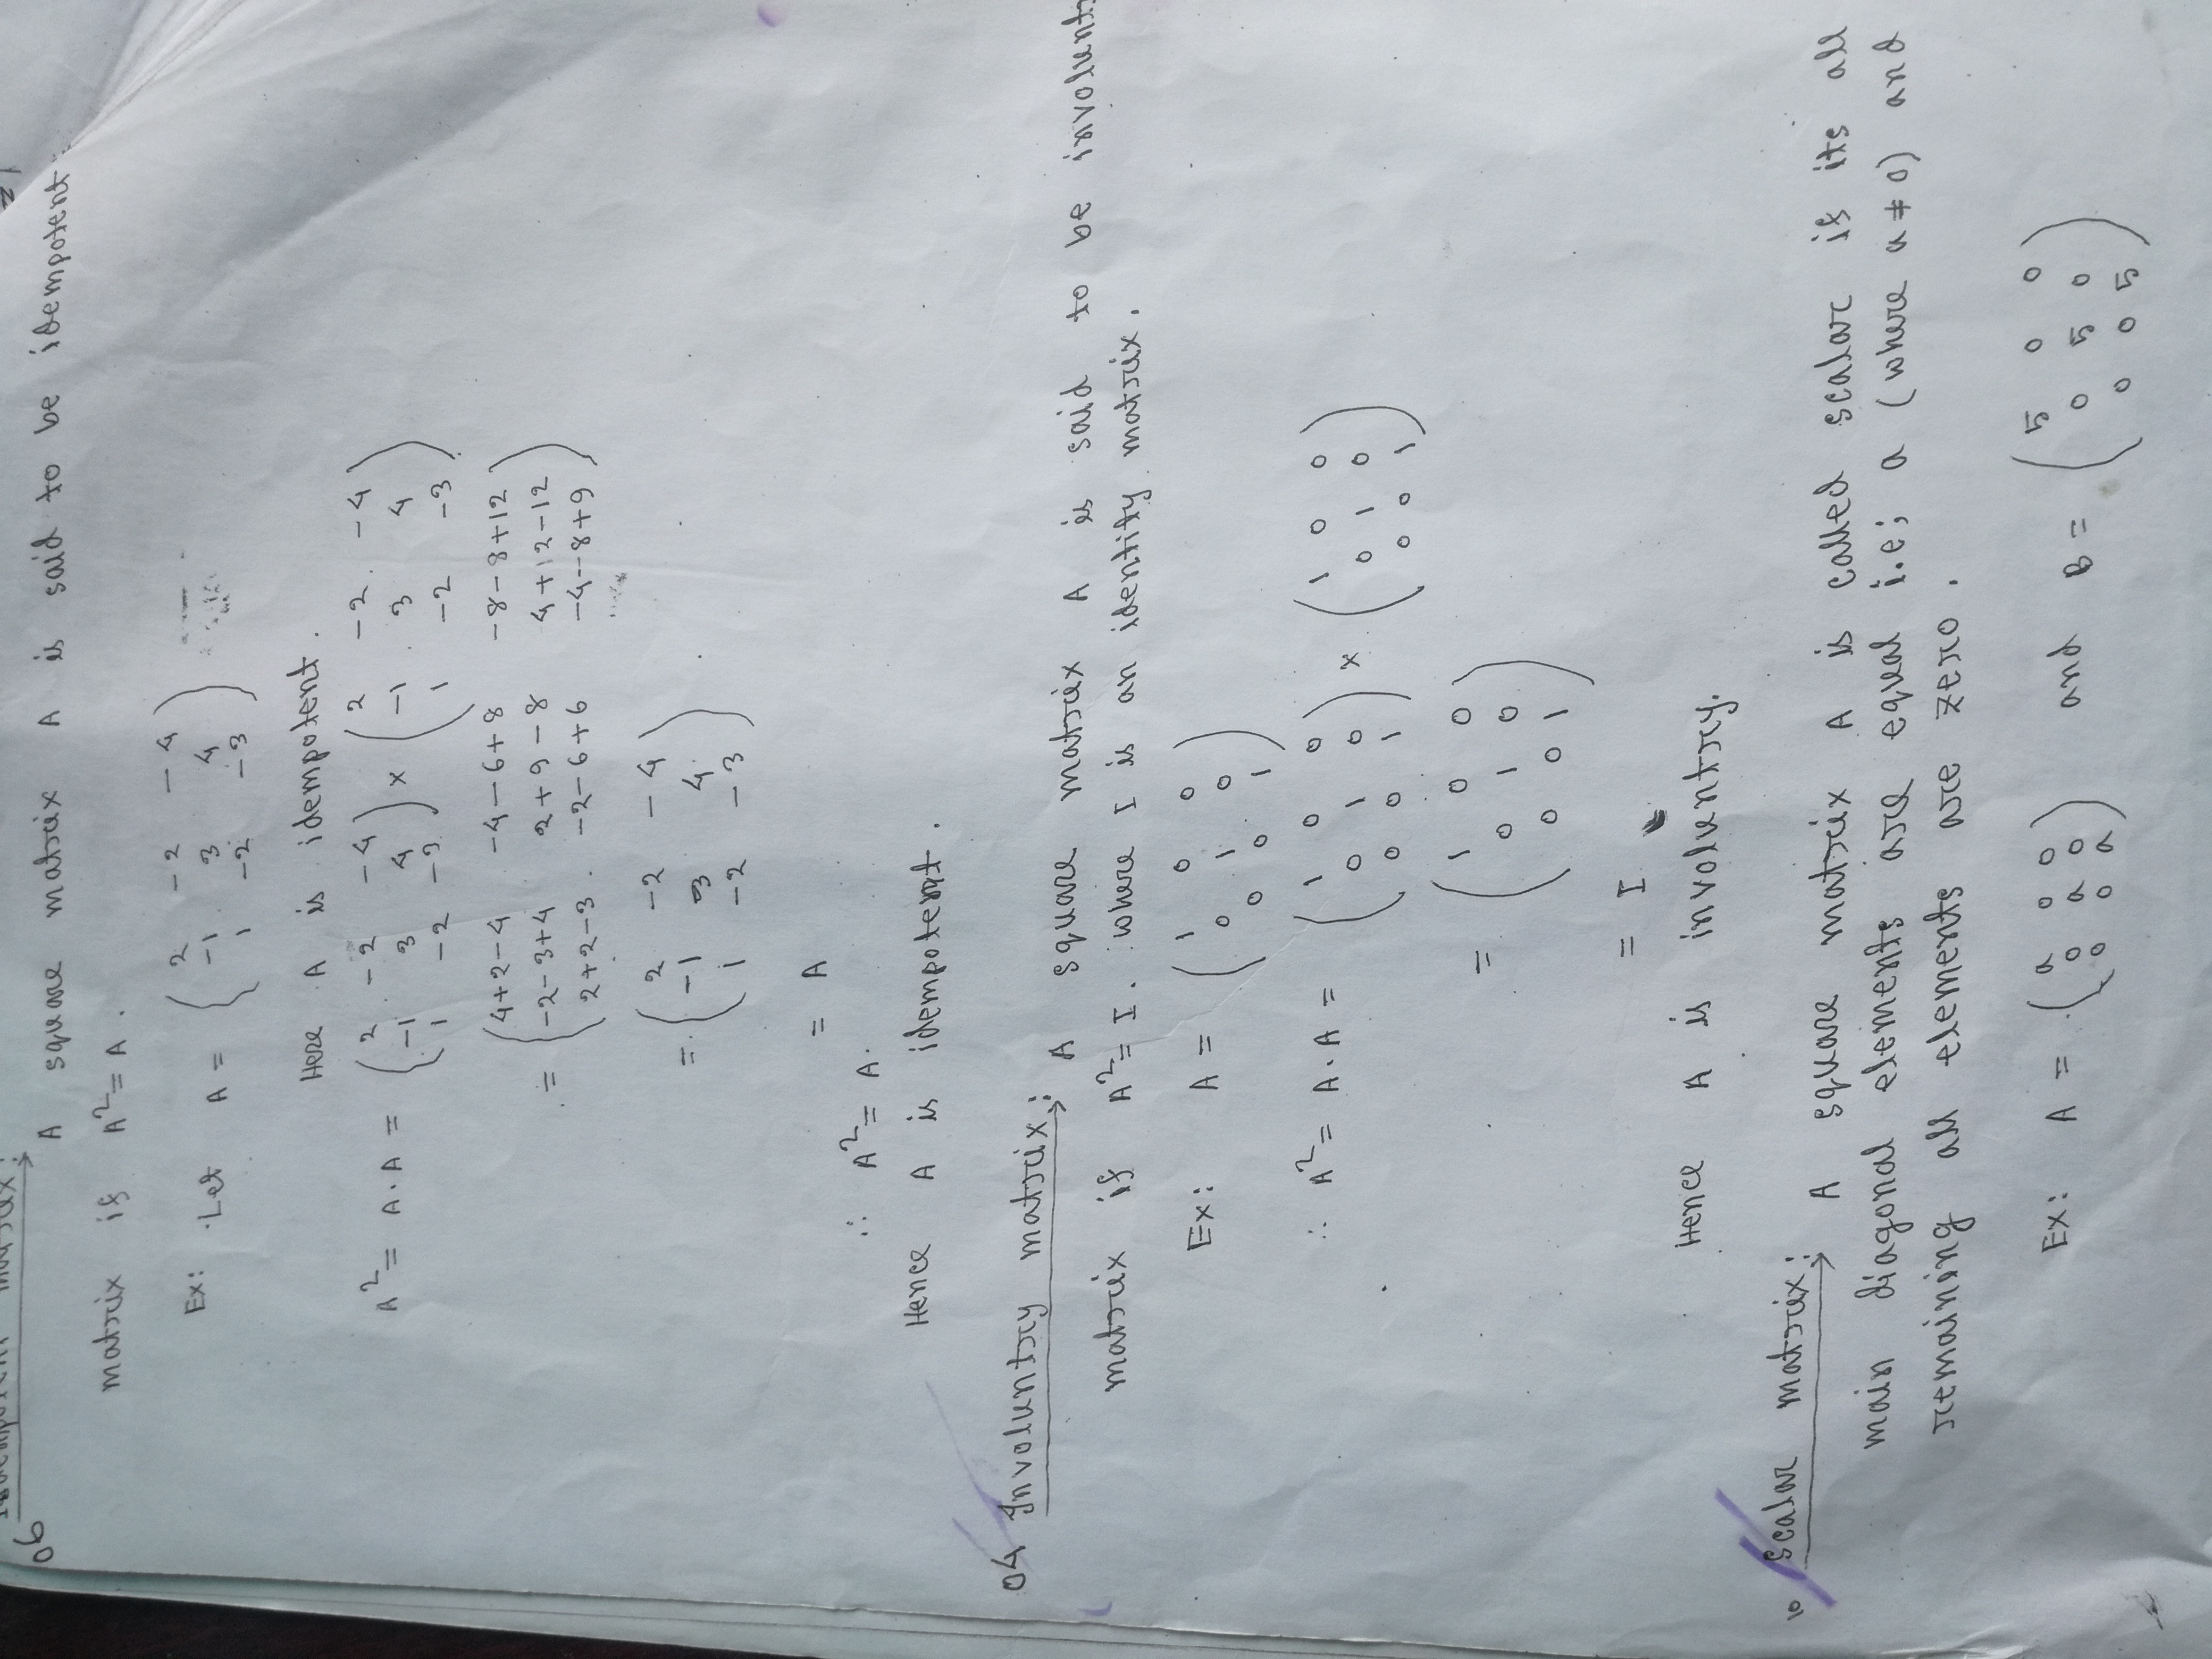 06 Indempotent matrix:
A square matrix A is said to be idempotent
matrix if A² = A.
Ex: Let A = ( 2 -2 -4
-1 3 4
1 -2 -3 )
Here A is idempotent.
A² = A.A = ( 2 -2 -4 ) × ( 2 -2 -4 )
( -1 3 4 ) ( -1 3 4 )
( 1 -2 -3 ) ( 1 -2 -3 )
= ( 4+2-4 -4-6+8 -8-8+12
-2-3+4 2+9-8 4+12-12
2+2-3 -2-6+6 -4-8+9 )
= ( 2 -2 -4
-1 3 4
1 -2 -3 )
= A
∴ A² = A.
Hence A is idempotent.
04 Involuntry matrix:
A square matrix A is said to be
matrix if A² = I. where I is an identity matrix.
Ex: A = ( 1 0 0
0 1 0
0 0 1 )
∴ A² = A.A = ( 1 0 0 ) × ( 1 0 0 )
( 0 1 0 ) ( 0 1 0 )
( 0 0 1 ) ( 0 0 1 )
= ( 1 0 0
0 1 0
0 0 1 )
= I
Hence A is involuntry.
10 Scalar matrix:
A square matrix A is called scalar if its all
main diagonal elements are equal i.e; a (where a ≠ 0) and
remaining all elements are zero.
Ex: A = ( a 0 0 ) and B = ( 5 0 0 )
( 0 a 0 ) ( 0 5 0 )
( 0 0 a ) ( 0 0 5 )